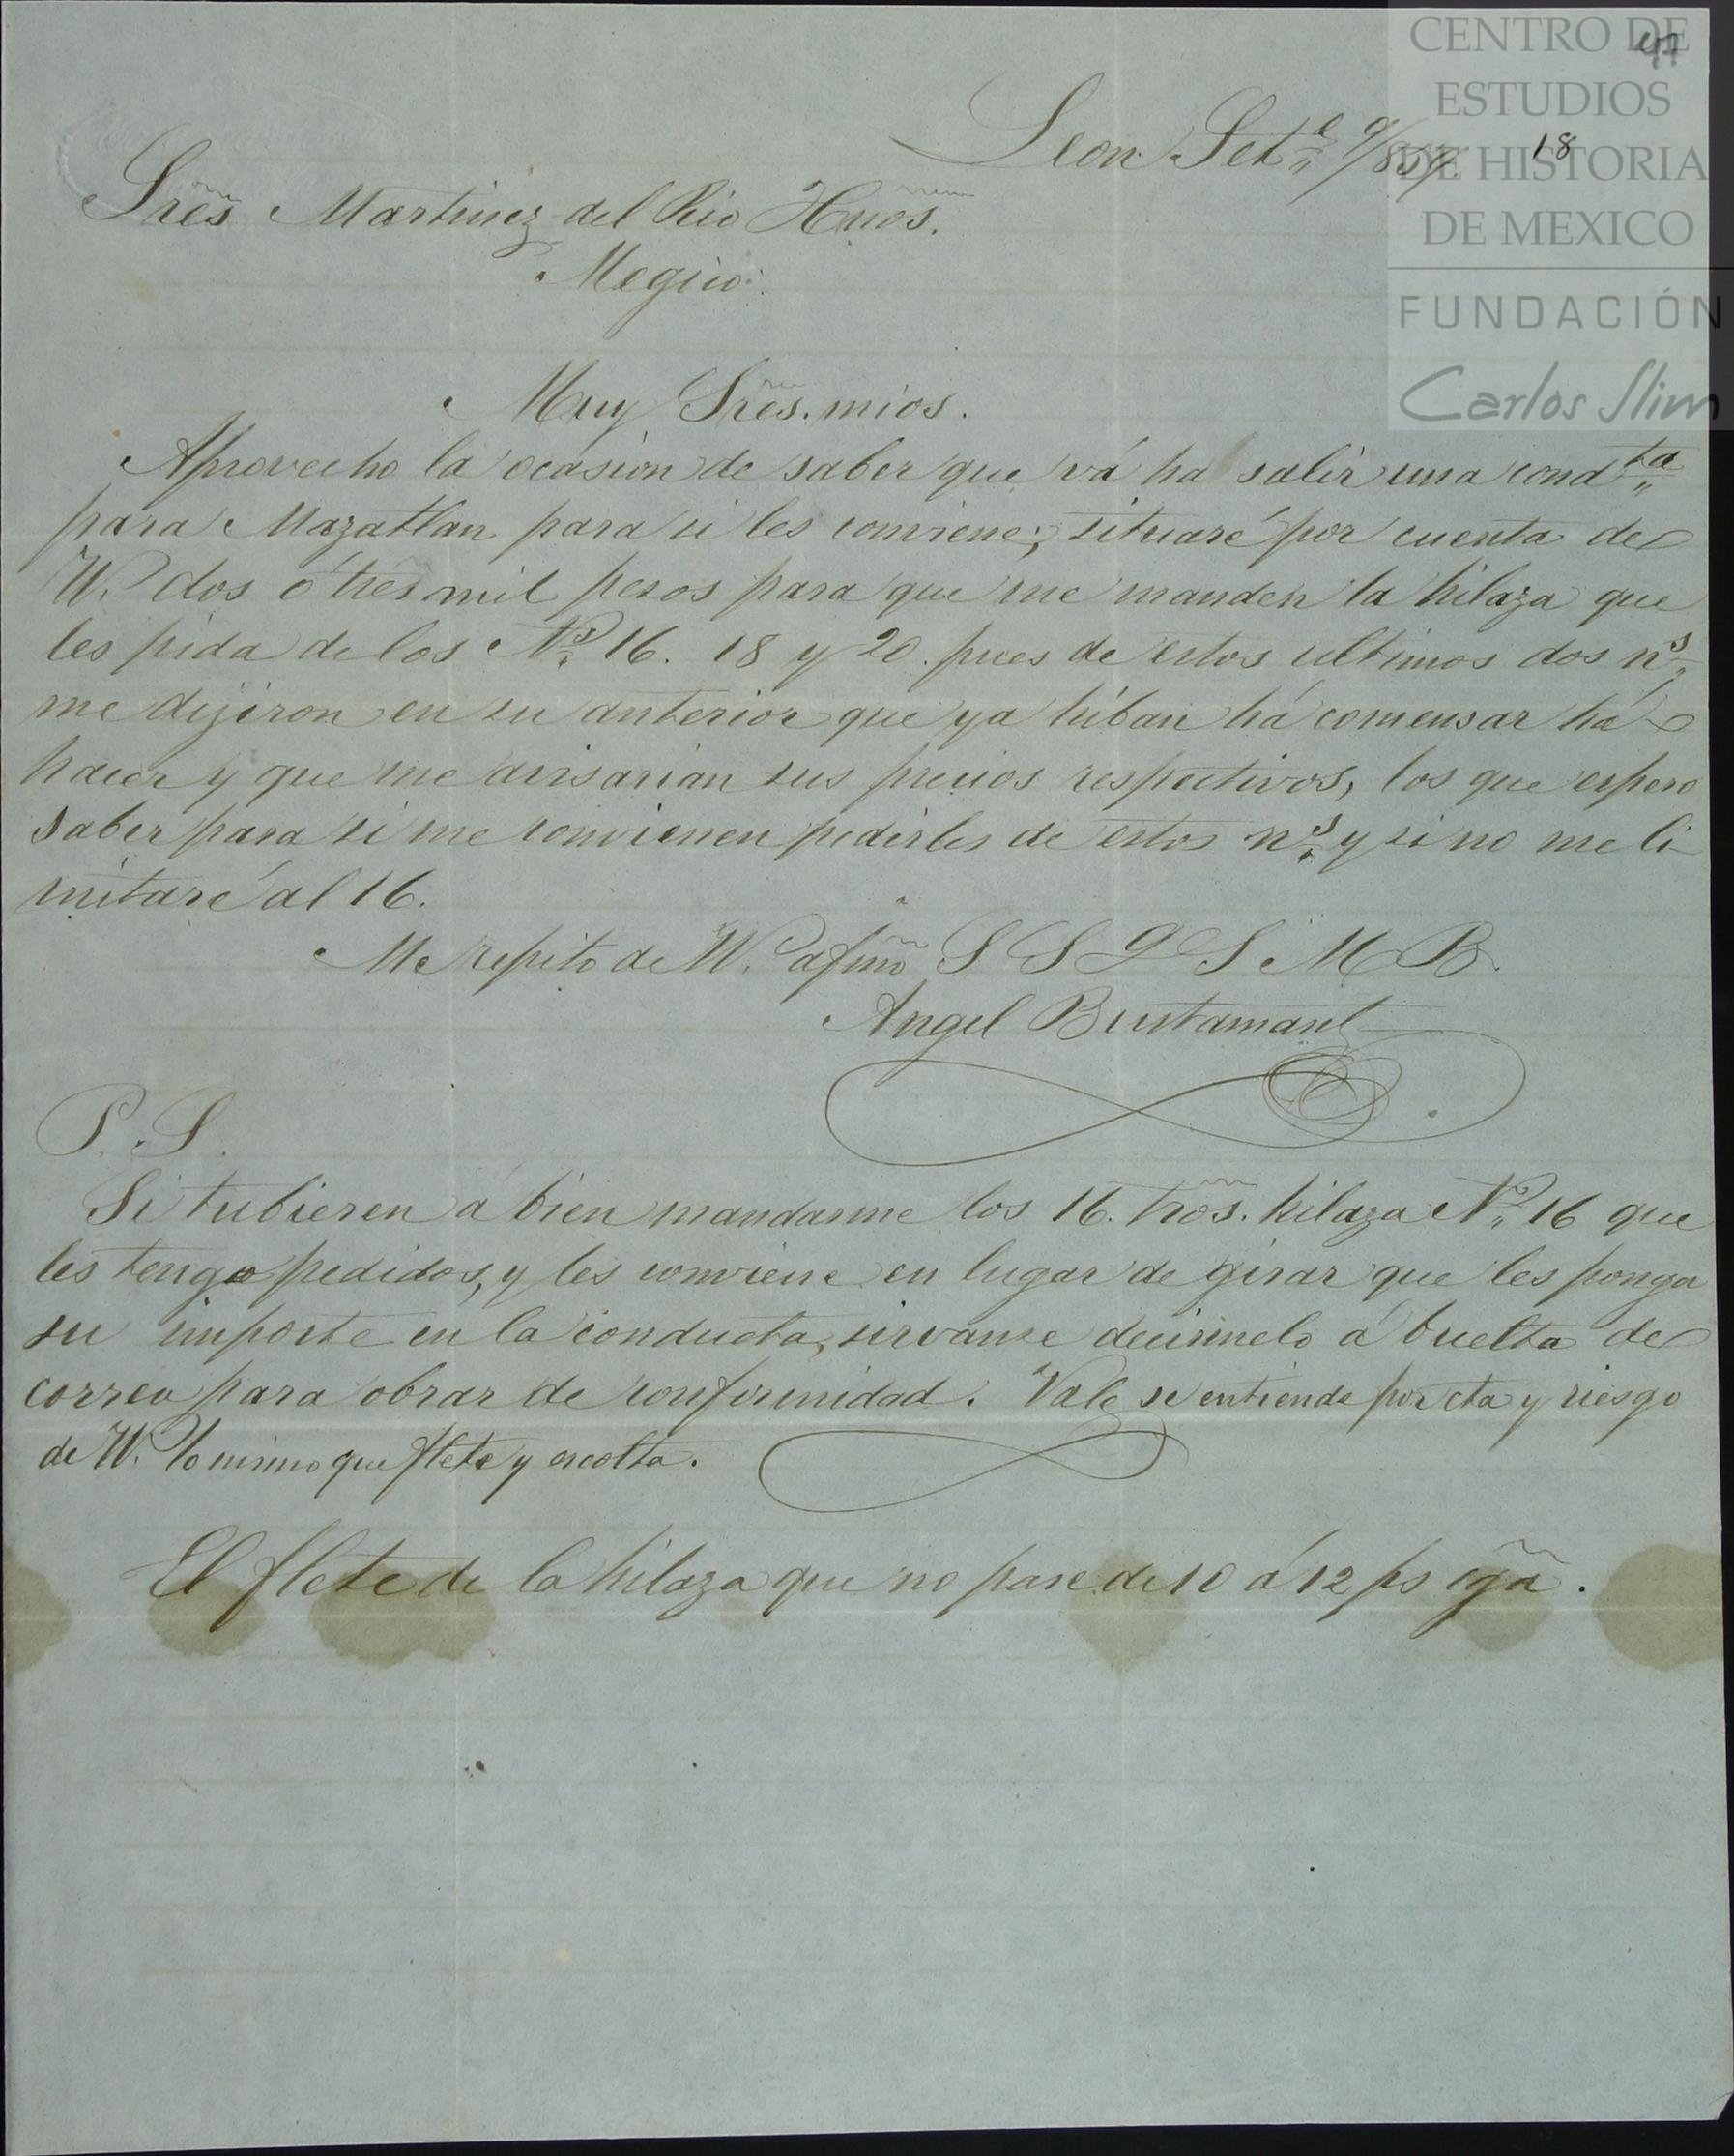 CENTRO DE
ESTUDIOS
DE HISTORIA
DE MEXICO
FUNDACIÓN
Carlos Slim
18
Leon Set.e 9/859.
Sres Martinez del Rio Hnos.
Megico.
Muy Sres. mios.
Aprovecho la ocasion de saber que vá ha salir una condta
para Mazatlan para si les conviene; situaré por cuenta de
VV. dos ó tres mil pesos para que me manden la hilaza que
les pida de los Nos. 16. 18 y 20. pues de estos ultimos dos ns.
me dijeron en su anterior que ya hiban há comensar há
hacer y que me avisarian sus precios respectivos, los que espero
saber para si me convienen pedirles de estos ns. y si no me li-
mitaré al 16.
Me repito de VV. afmo S S Q S M B.
Angel Bustamante
P. S.
Si tubieren á bien mandarme los 16. tros. hilaza No. 16 que
les tengo pedidos, y les conviene en lugar de girar que les ponga
su importe en la conducta, sirvanse decirmelo á buelta de
correo para obrar de conformidad. Vale se entiende por cta y riesgo
de VV. lo mismo que flete y escolta.
El flete de la hilaza que no pase de 10 á 12 ps cga.